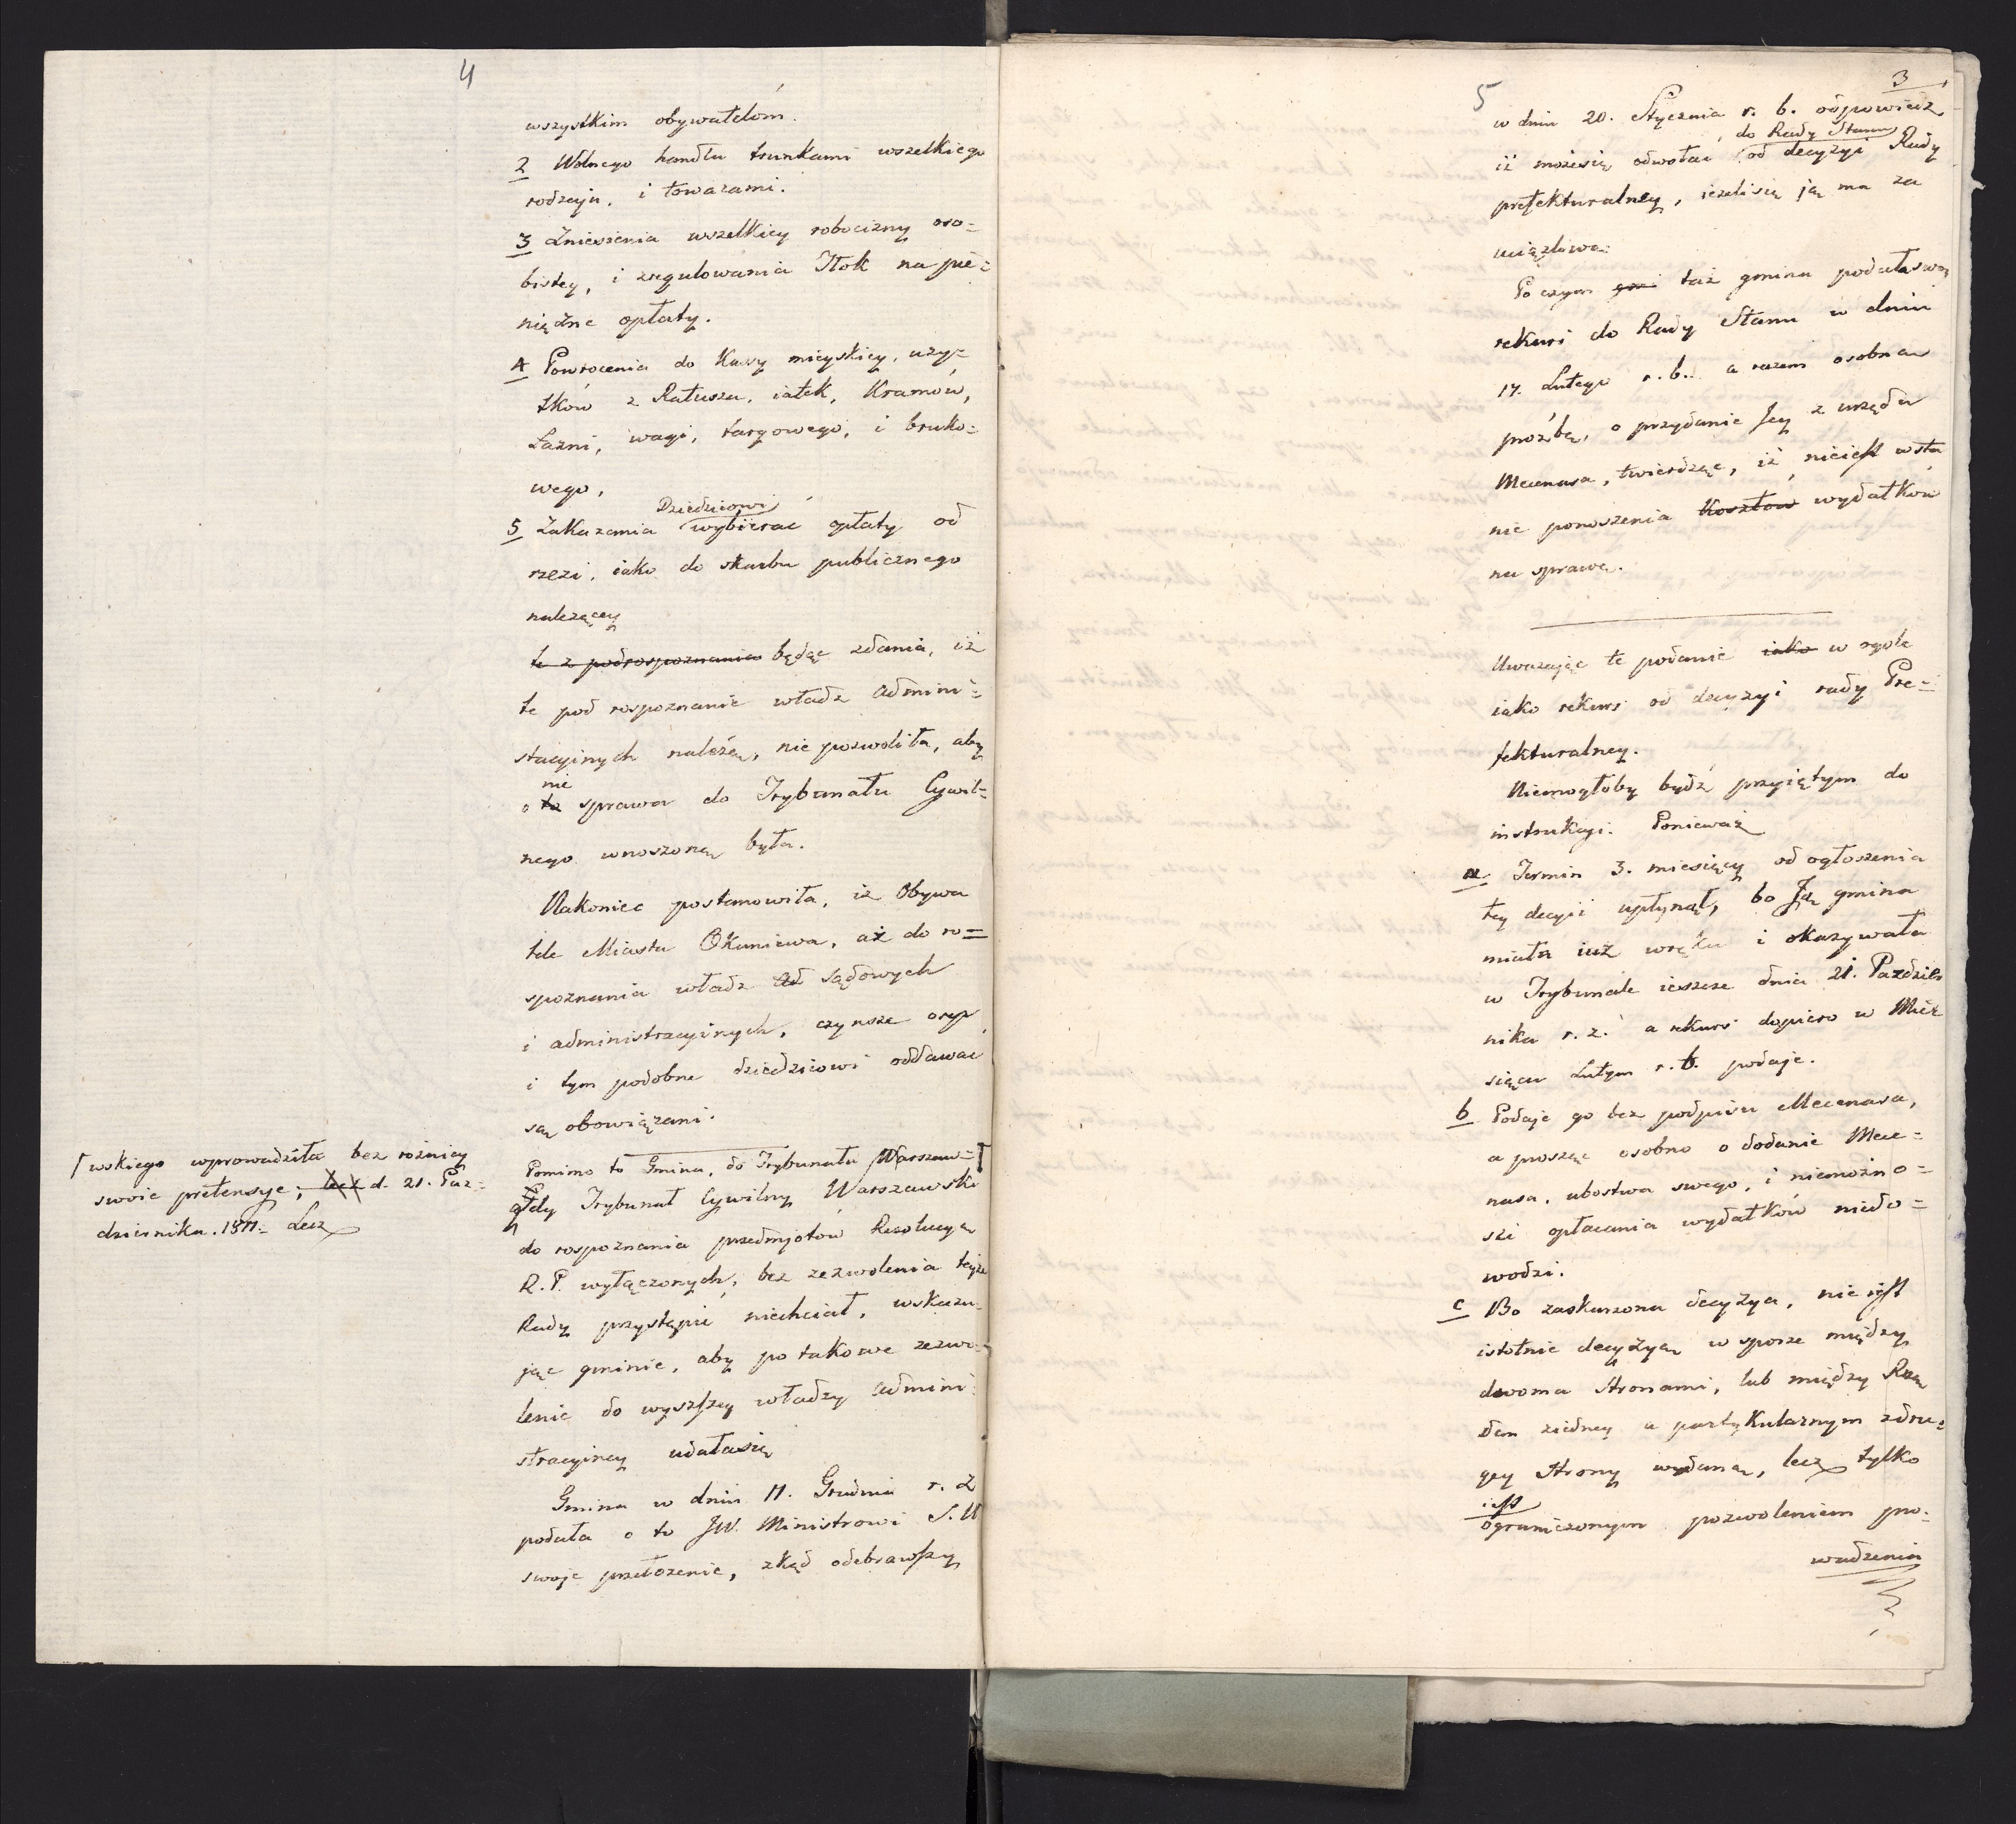 4
wszystkim obywatelóm.
2 Wolnego handlu trunkami wszelkiego
rodzaju, i towarami.
3 Zniesienia wszelkiey robocizny oso=
bistey, i zregulowania Jtok na pie=
niężne opłaty.
4 Powrocenia do Kassy mieyskiey, uży=
tków z Ratusza, iatek, Kramów,
Łazni, wagi, targowego, i bruko=
wego,
Dziedzicowi
5 Zakazania wybierać opłaty od
rzezi, iako do skarbu publicznego
nalezącey
te z pod rospoznania będąc zdania, iż
te pod rospoznanie władz admini=
stracyinych należą, nie pozwoliła, aby
nie
o to sprawa do Trybunału Cywil=
nego wnoszoną była.
Nakoniec postanowiła, iż Obywa
tele Miasta Okuniewa, aż do ro=
spoznania władz ad sądowych
i administracyinych, czynsze osep
i tym podobne dziedzicowi oddawać
są obowiązani.
Pomimo to Gmina, do Trybunału Warszaw=
⌈wskiego wprowadziła bez rożnicy
swoie pretensye; lecz d. 21. Paz=
dziernika. 1811. Lecz
gdy Trybunał Cywilny Warszawski
do rospoznania przedmiotów Rezolucyą
R. P. wyłączonych, bez zezwolenia teyże
Rady przystąpić niechciał, wskazu=
jąc gminie, aby po takowe zezwo=
lenie do wyższey władzy admini=
stracyiney udałasię
Gmina w dniu 11. Grudnia r. z
podała o to JW. Ministrowi S. W
swoje przełożenie, zkąd odebrawszy
5
3
w dniu 20. Stycznia r. b. odpowiedz
do Rady Stanu
iż możesię odwołać od decyzyi Rady
prefekturalney, ieżelisię ją ma za
uciążliwą
Po czym gmi taż gmina podała swoy
rekurs do Rady Stanu w dniu
17. Lutego r. b. a razem osobną
proźbę, o przydanie Jey z urzędu
Mecenasa, twierdząc, iż nieiest w sta
nie ponoszenia Kosztów wydatków
na sprawę.
Uwazając te podanie iako w ogole
iako rekurs od decyzyi rady Pre=
fekturalney.
Niemogłoby bydź przyiętym do
instrukcyi. Ponieważ
a Termin 3. miesięcy od ogłoszenia
tey decyzii upłynął, bo Ją gmina
miała iuż w ręku i okazywała
w Trybunale ieszcze dnia 21. Pazdzier
nika r. z. a rekurs dopiero w Mie=
siącu Lutym r. b. podaje.
b Podaje go bez podpisu Mecenasa,
a prosząc osobno o dodanie Mece=
nasa, ubostwa swego, i niemożno=
ści opłacania wydatków niedo=
wodzi.
c Bo zaskarzona decyzya, nie iest
istotnie decyzyą w sporze między
dwoma Stronami, lub między Rzą
dem ziedney a partykularnym zdru=
giey Strony wydaną, lecz tylko
iest
ograniczonym pozwoleniem pro=
wadzenia